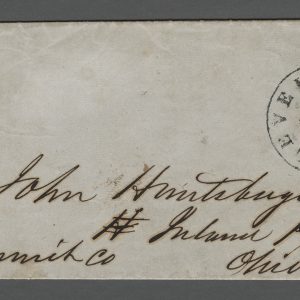 EVE
John Huntsbuge
Inland
Co Ohio